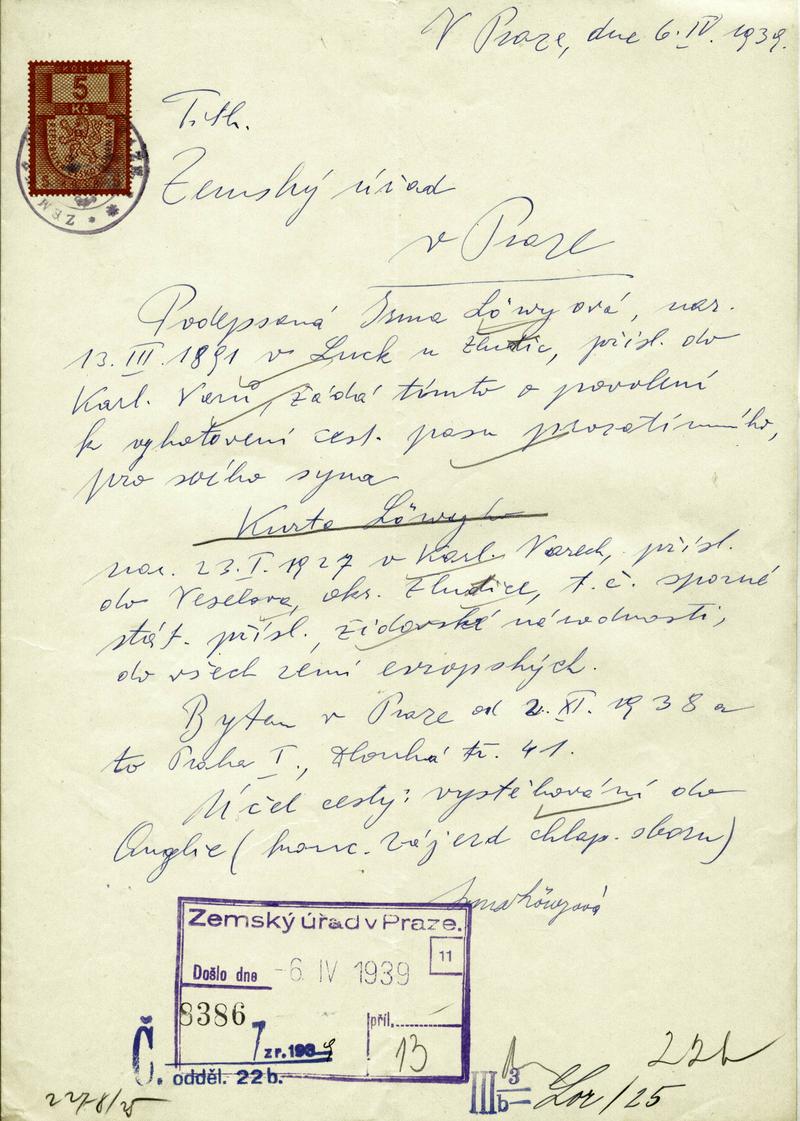 V Praze, dne 6. IV. 1939.
KOLEK
5
Kč
Tith.
Zemský úřad
v Praze
Podepsaná Irma Löwyová, nar.
13. III. 1891 v Luck u Žlutic, přísl. do
Karl. Varů, žádá tímto o povolení
k vyhotovení cest. pasu prozatímního,
pro svého syna
Kurta Löwyho
nar. 23. I. 1927 v Karl. Varech, přísl.
do Veselova, okr. Žlutice, t. č. sporné
stát. přísl., židovské národnosti,
do všech zemí evropských.
Bytem v Praze od 2. XI. 1938 a
to Praha I., Dlouhá tř. 41.
Účel cesty: vystěhování do
Anglie (konc. zájezd chlap. sboru)
Irma Löwyová
Zemský úřad v Praze.
11
Došlo dne -6. IV 1939
8386
7
z r. 1939
příl.
13
Č.
odděl. 22 b.
22b
III 3
b
/25
2278/25